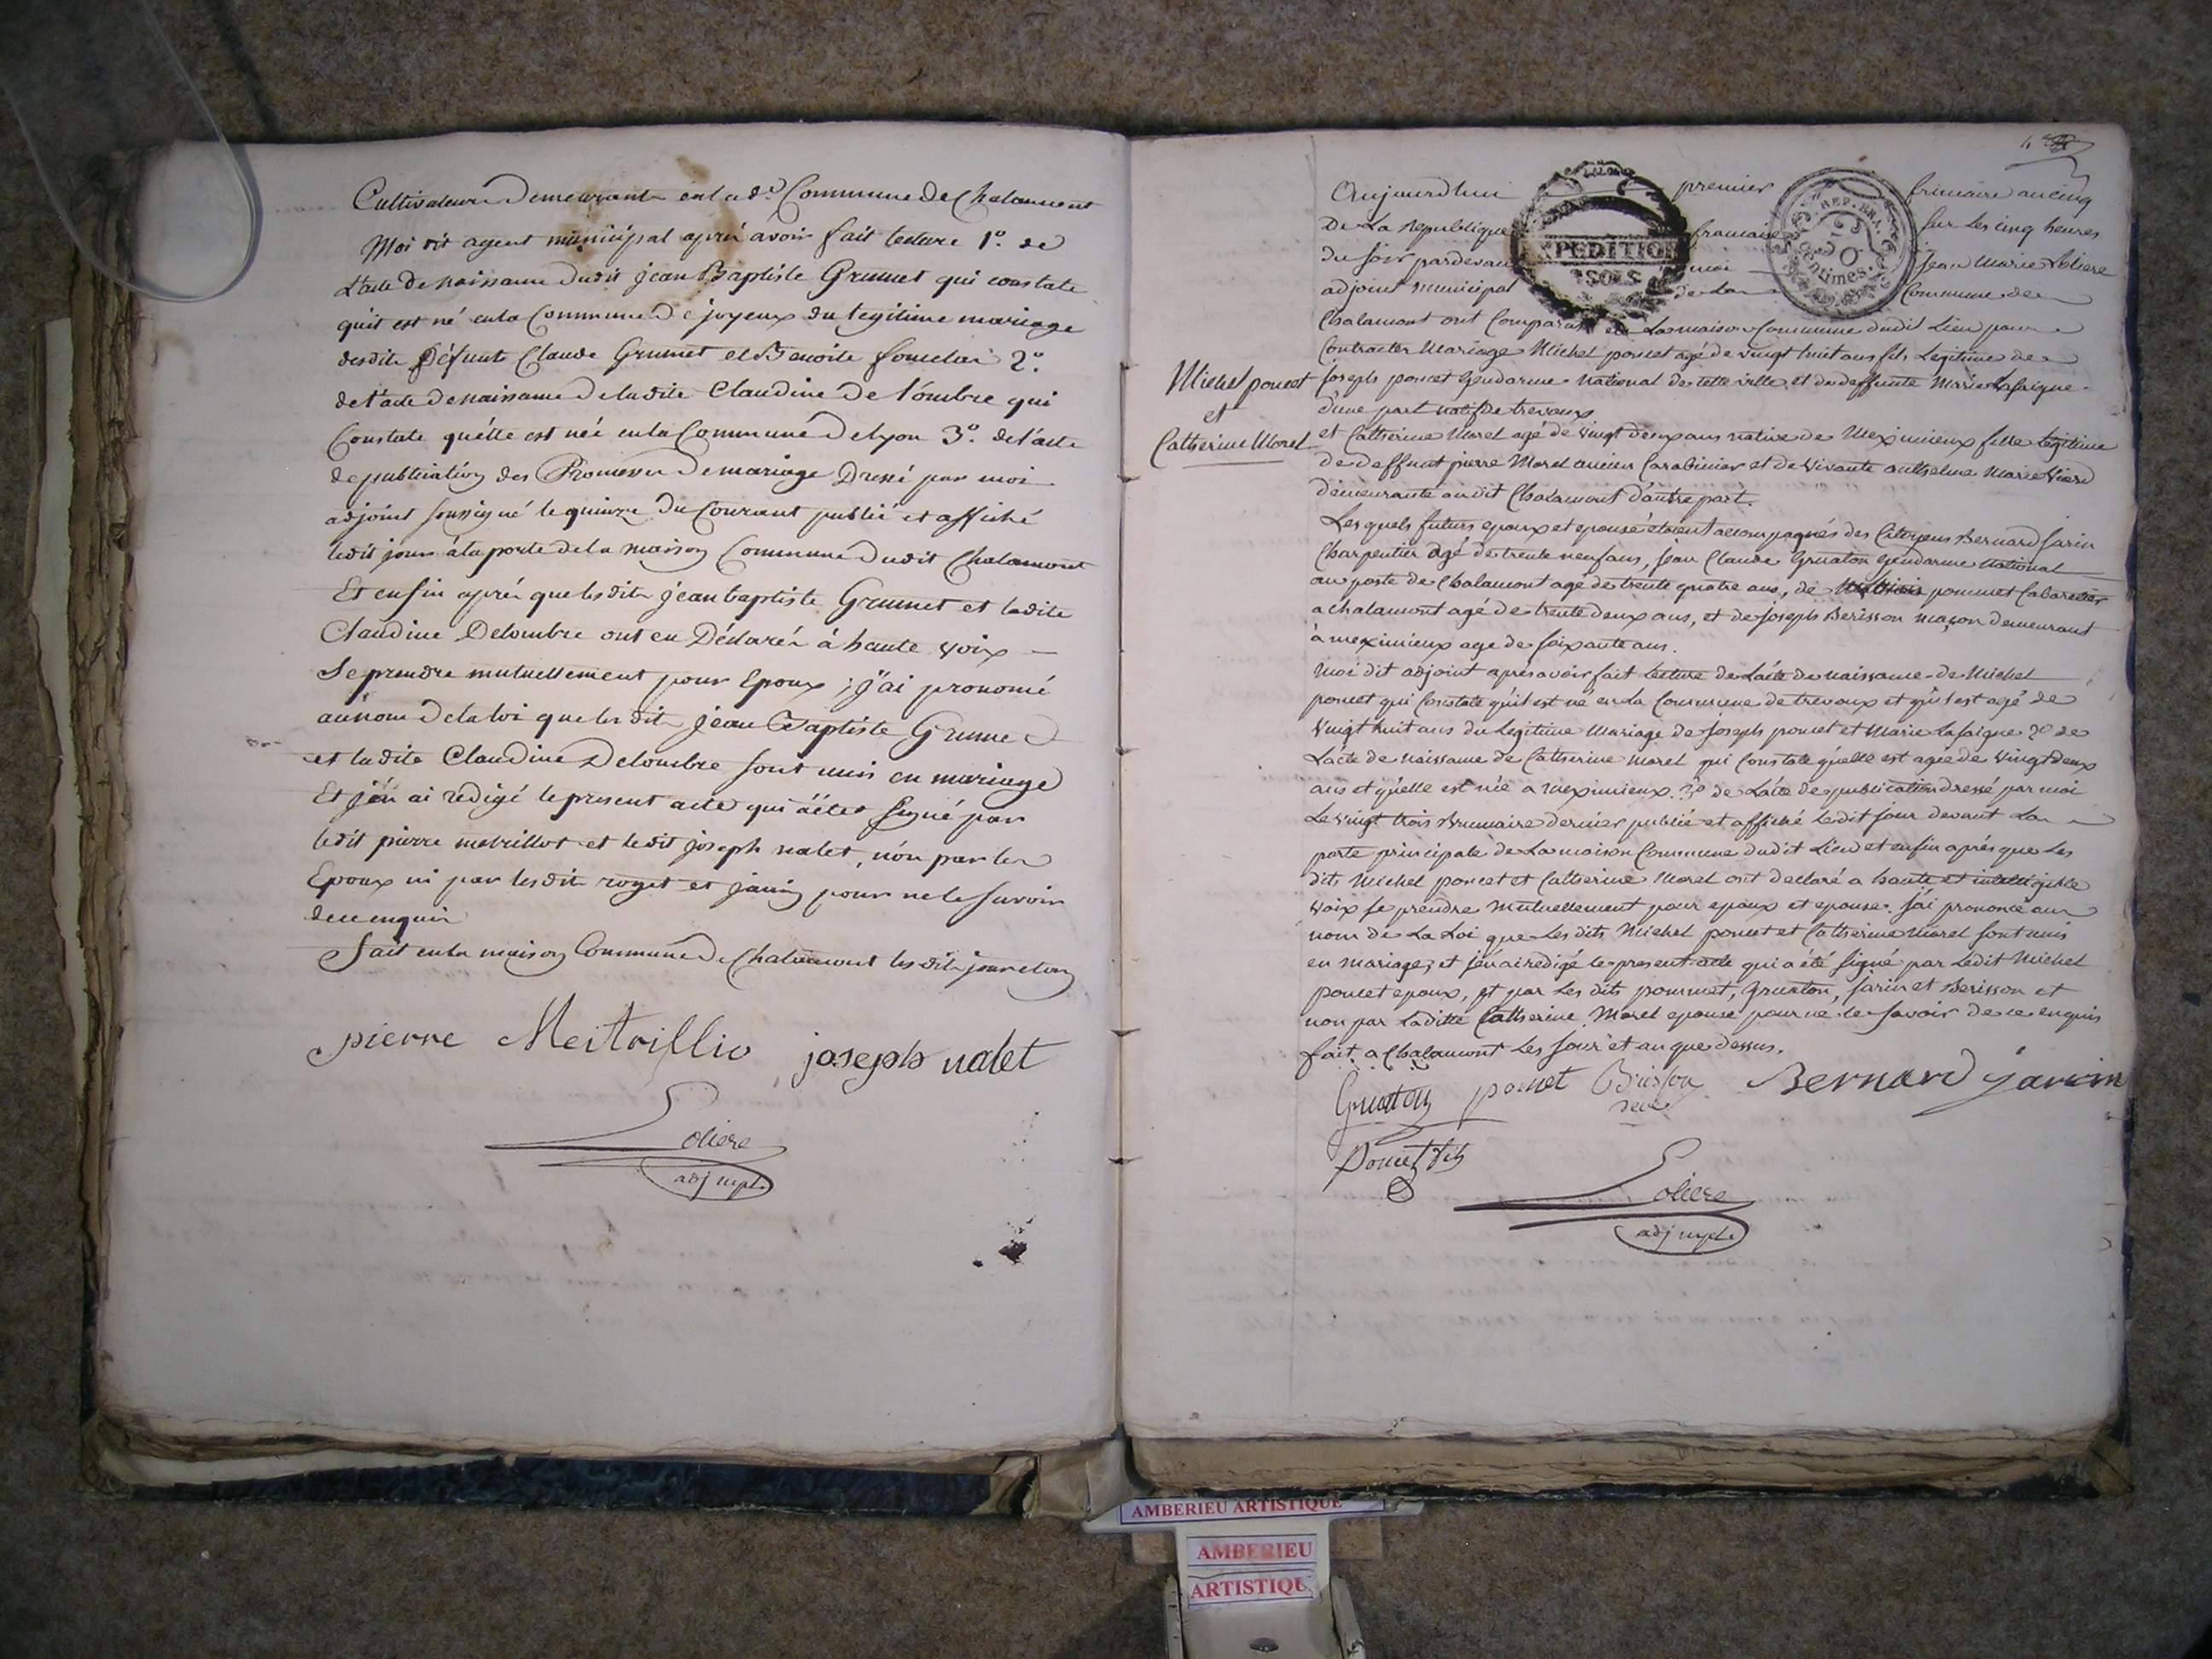 Cultivateurs Demeurants en la de. Commune De Chalamont
Moi dit agent municipal aprés avoir fait lecture 1o. de
L'acte de naissance dudit jean Baptiste Grumet qui constate
qu'il est né en la Commune De joyeux du legitime mariage
desdits Défunts Claude Grumet et Benoite 2o.
de l'acte de naissance de ladite Claudine De l'ombre qui
Constate quélle est née en la Commune De Lyon 3o. de l'acte
de publication des Promesses De mariage Dressé par moi
adjoint soussigné le quinze Du Courant publié et affiché
ledit jour à la porte de la maison Commune Dudit Chalamont
Et enfin aprés que lesdits jean baptiste Grumet et ladite
Claudine Delombre ont eu Déclarés à haute voix
Se prendre mutuellement pour Epoux ; j'ai prononcé
au nom De la loi que lesdits jean Baptiste Grumet
et ladite Claudine Delombre sont unis en mariage
Et j'en ai redigé le present acte qui a été signé par
ledit pierre metrillot et ledit joseph nalet, non par les
Epoux ni par lesdits roget et janin pour ne le savoir
de ce enquis
Fait en la maison Commune De Chalamont lesdits jour et an
pierre Meitrillio joseph nalet
Loliere
adj mpl.
Aujourdhui premier frimaire an cinq
De La Republique francaise sur Les cinq heures
du soir pardevant moi Jean Marie Loliere
adjoint municipal de La Commune de
EXPEDITION
SOLS
REP. FRA.
50
Centimes.
Chalamont ont Comparus en La maison Commune dudit Lieu pour
Contracter Mariage Michel poncet agé de vingt huit ans fils Legitime de
Michel poncet
et
Catherine Morel
Joseph poncet Gendarme National de cette ville et de deffunte Marie Lafaigue
d'une part natif de trevoux
et Catherine Morel agé de vingt deux ans native de Meximieux fille Legitime
de deffunt pierre Morel ancien Carabinier et de vivante anthelme Marie
demeurante audit Chalamont d'autre part.
Les quels futurs epoux et epouse étoient accompagnés des Citoyens Bernard Jarin
Charpentier agé de trente neuf ans, Jean Claude Gruaton Gendarme National
au poste de Chalamont agé de trente quatre ans, de pommet Cabaretier
a chalamont agé de trente deux ans, et de Joseph Berisson maçon demeurant
à meximieux age de soixante ans.
Moi dit adjoint après avoir fait Lecture de L'acte de naissance de Michel
poncet qui Constate qu'il est né en La Commune de trevoux et qu'il est agé de
vingt huit ans du Legitime Mariage de Joseph poncet et Marie Lafaigue 2o de
L'acte de Naissance de Catherine Morel qui Constate quélle est agée de vingt deux
ans et quélle est née a meximieux. 3o de L'acte de publication dressé par moi
Le vingt trois Brumaire dernier publié et affiché Ledit jour devant La
porte principale de La maison Commune dudit Lieu et enfin après que Les
dits Michel poncet et Catherine Morel ont declaré a haute et intelligible
voix se prendre Mutuellement pour epoux et epouse. J'ai prononcé au
nom de La Loi que Les dits Michel poncet et Catherine Morel sont unis
en mariage, et j'en ai redigé Le present acte qui a été signé par Ledit Michel
poncet epoux, et par Les dits pommet, Gruaton, Jarin et Berisson et
non par Laditte Catherine Morel epouse pour ne Le savoir de ce enquis
fait a Chalamont Les Jour et an que dessus.
Gruaton Bernard jarin
Poncet fils
Loliere
adj mpl.
AMBERIEU ARTISTIQUE
AMBERIEU
ARTISTIQU